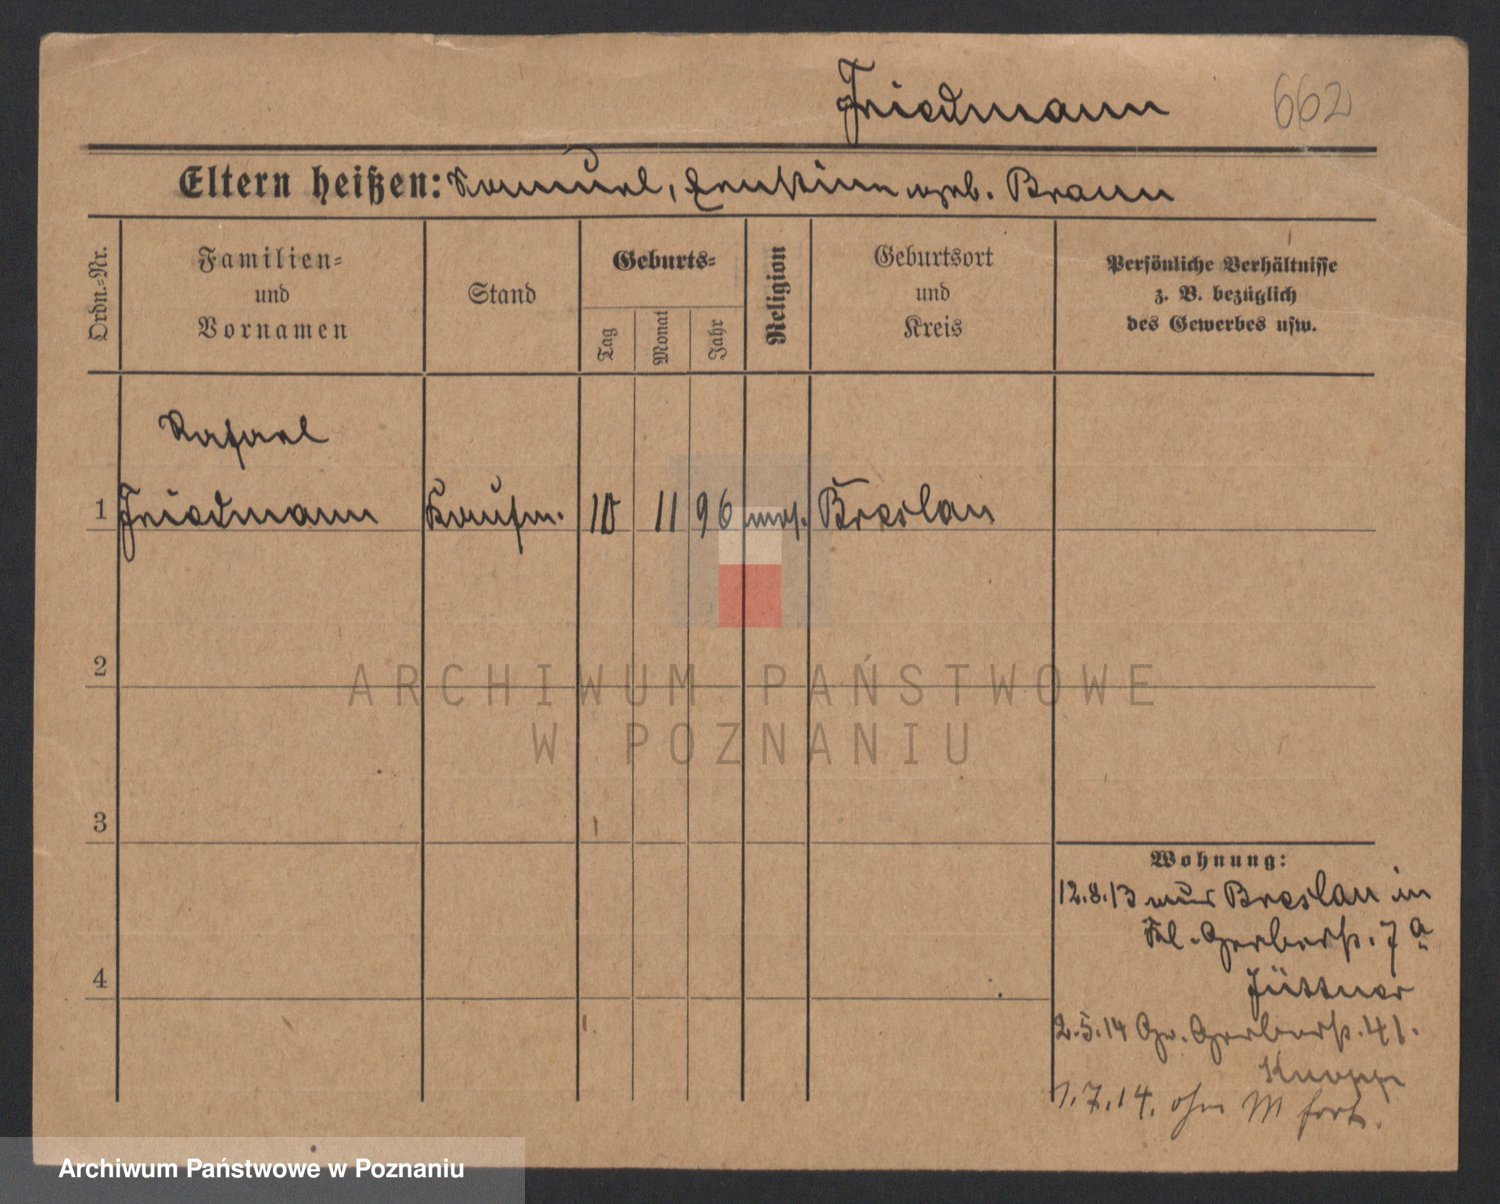 Friedmann 662
Eltern heißen: Samuel, Ernstine geb. Braun
Ordn.-Nr.
Familien-
und
Vornamen
Stand
Geburts-
Tag
Monat
Jahr
Religion
Geburtsort
und
Kreis
Persönliche Verhältnisse
z. B. bezüglich
des Gewerbes usw.
Rafael
1 Friedmann Kaufm. 10 11 96 mos. Breslau
2
3
4
Wohnung:
12.8.13 aus Breslau in
Kl. Gerberst. 7a
Jüttner
2.5.14 Gr. Gerberst. 41.
Knopp
1.7.14. ohn M fort.
ARCHIWUM PAŃSTWOWE
W POZNANIU
Archiwum Państwowe w Poznaniu